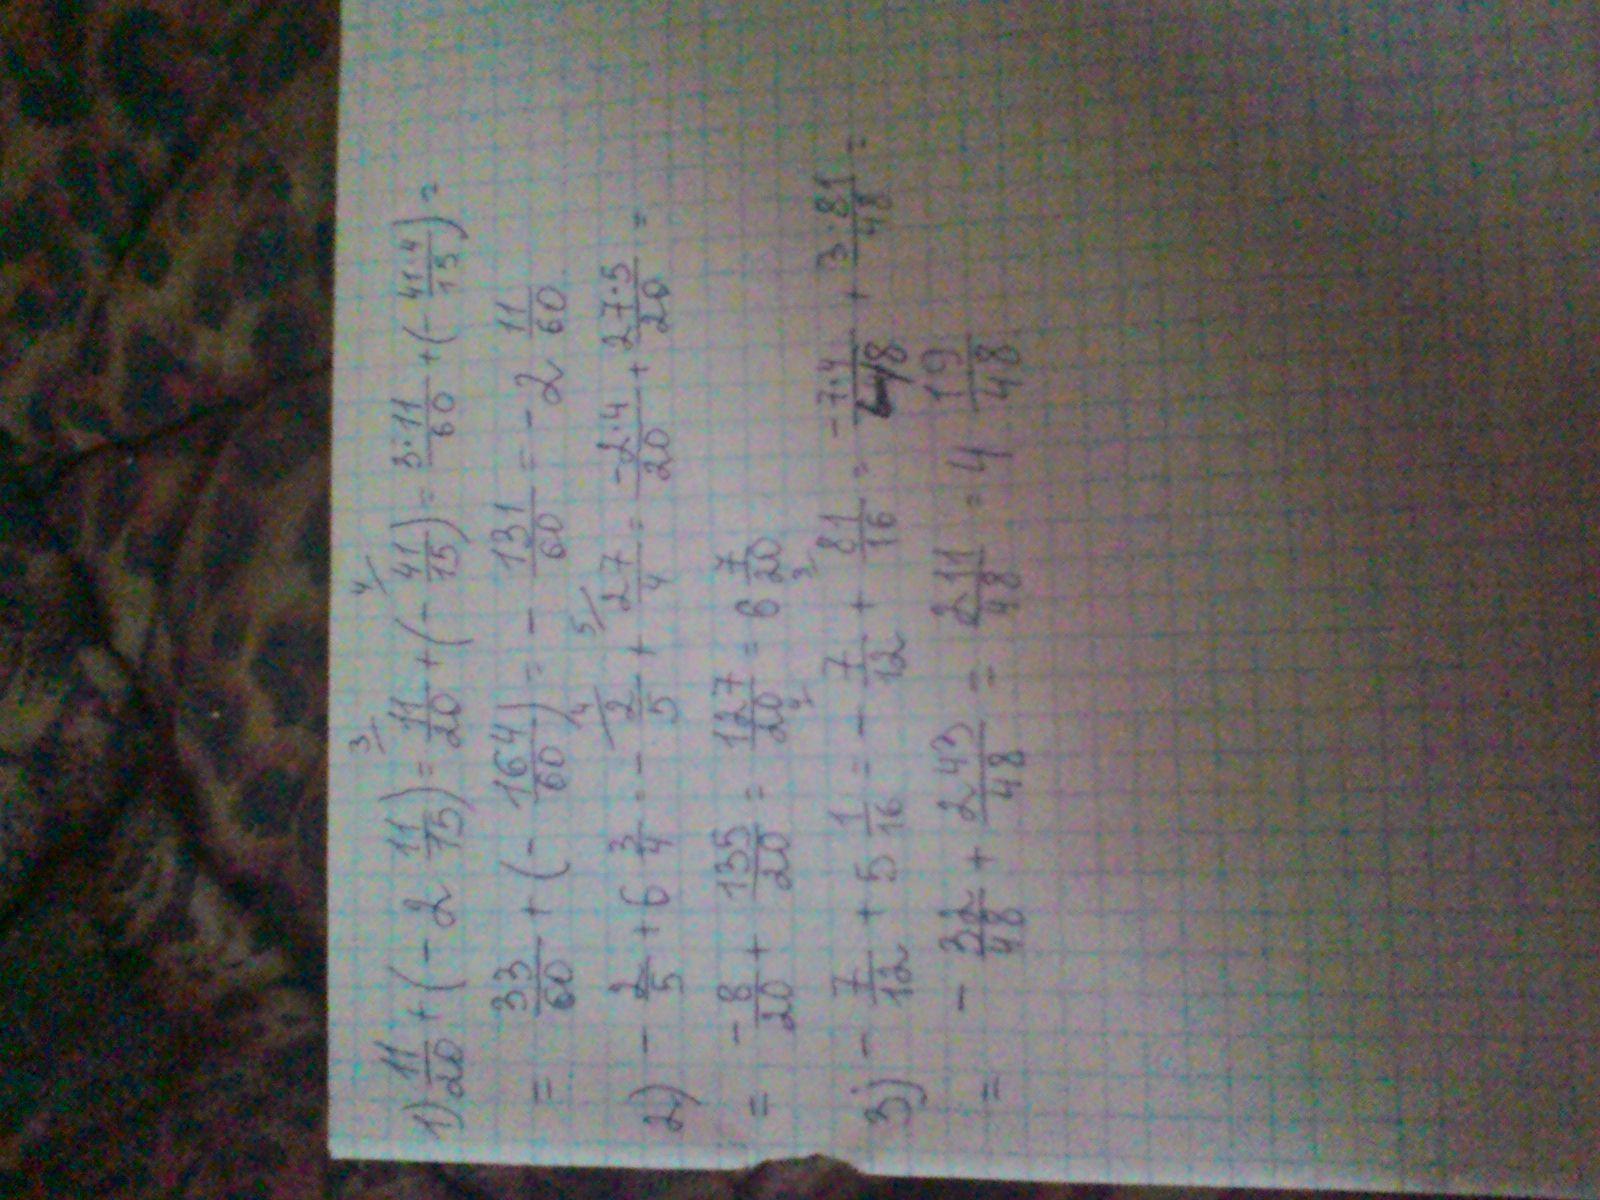 1) 11/20 + (- 2 11/15) = 11/20 + (- 41/15) = 3·11/60 + (- 41·4/15) =
= 33/60 + (- 164/60) = - 131/60 = - 2 11/60
2) - 2/5 + 6 3/4 = - 2/5 + 27/4 = -2·4/20 + 27·5/20 =
= -8/20 + 135/20 = 127/20 = 6 7/20
3) - 7/12 + 5 1/16 = - 7/12 + 81/16 = -7·4/48 + 3·81/48 =
= - 32/48 + 243/48 = 211/48 = 4 19/48